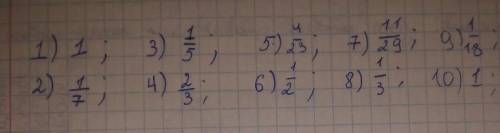 1) 1; 3) 1/5; 5) 4/23; 7) 11/29; 9) 1/18;
2) 1/7; 4) 2/3; 6) 1/2; 8) 1/3; 10) 1;